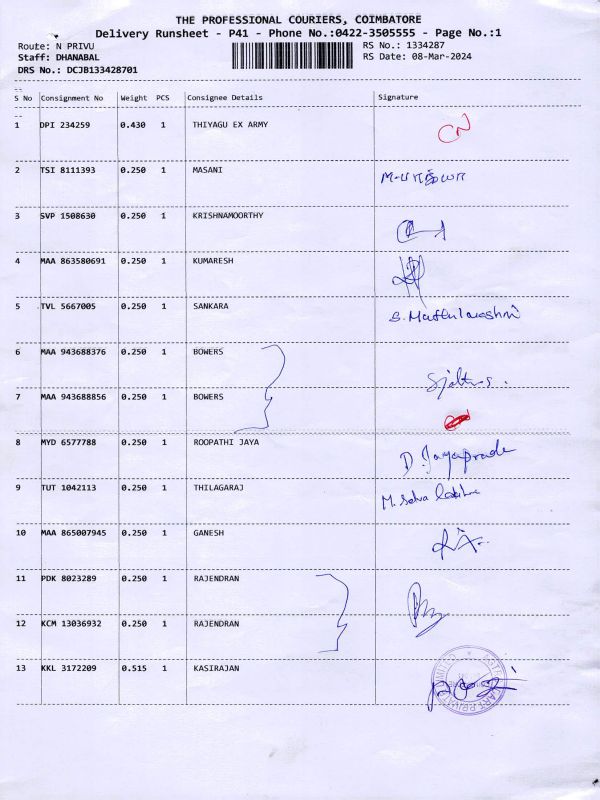 THE PROFESSIONAL COURIERS, COIMBATORE
Delivery Runsheet - P41 - Phone No.:0422-3505555 - Page No.:1
Route: N PRIVU RS No.: 1334287
Staff: DHANABAL RS Date: 08-Mar-2024
DRS No.: DCJB133428701
S No Consignment No Weight PCS Consignee Details Signature
1 DPI 234259 0.430 1 THIYAGU EX ARMY CN
2 TSI 8111393 0.250 1 MASANI
3 SVP 1508630 0.250 1 KRISHNAMOORTHY
4 MAA 863580691 0.250 1 KUMARESH
5 TVL 5667005 0.250 1 SANKARA
6 MAA 943688376 0.250 1 BOWERS
7 MAA 943688856 0.250 1 BOWERS
8 MYD 6577788 0.250 1 ROOPATHI JAYA D. Jayaprada
9 TUT 1042113 0.250 1 THILAGARAJ
10 MAA 865007945 0.250 1 GANESH
11 PDK 8023289 0.250 1 RAJENDRAN
12 KCM 13036932 0.250 1 RAJENDRAN
13 KKL 3172209 0.515 1 KASIRAJAN